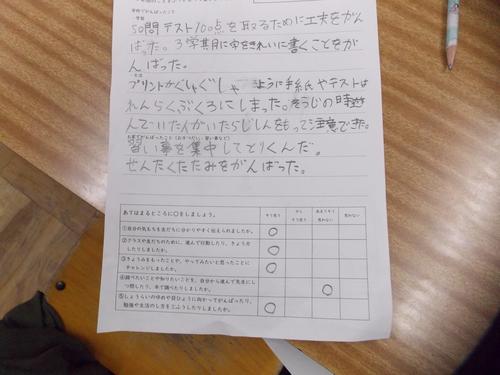 学校でがんばったこと
・学習
50問テスト100点を取るために工夫をがん
ばった。3学期月に字をきれいに書くことをが
んばった。
・生活
プリントがぐしゃぐしゃ ように手紙やテストは
れんらくぶくろにしまった。そうじの時遊
んでいた人がいたらじしんをもって注意できた。
お家でがんばったこと(お手つだい・習い事など)
習い事を集中してとりくんだ。
せんたくたたみをがんばった。
あてはまるところに○をしましょう。 そう思う 少しそう思う あまりそう思わない 思わない
①自分の気もちを友だちに分かりやすく伝えられましたか。 ○
②クラスや友だちのために、進んで行動したり、きょう力
したりしましたか。 ○
③きょうみをもったことや、やってみたいと思ったことに
チャレンジしましたか。 ○
④調べたいことや知りたいことを、自分から進んで先生にし
つ問したり、本で調べたりしましたか。 ○
⑤しょうらいのゆめや目ひょうに向かってがんばったり、
勉強や生活のし方をくふうしたりしましたか。 ○